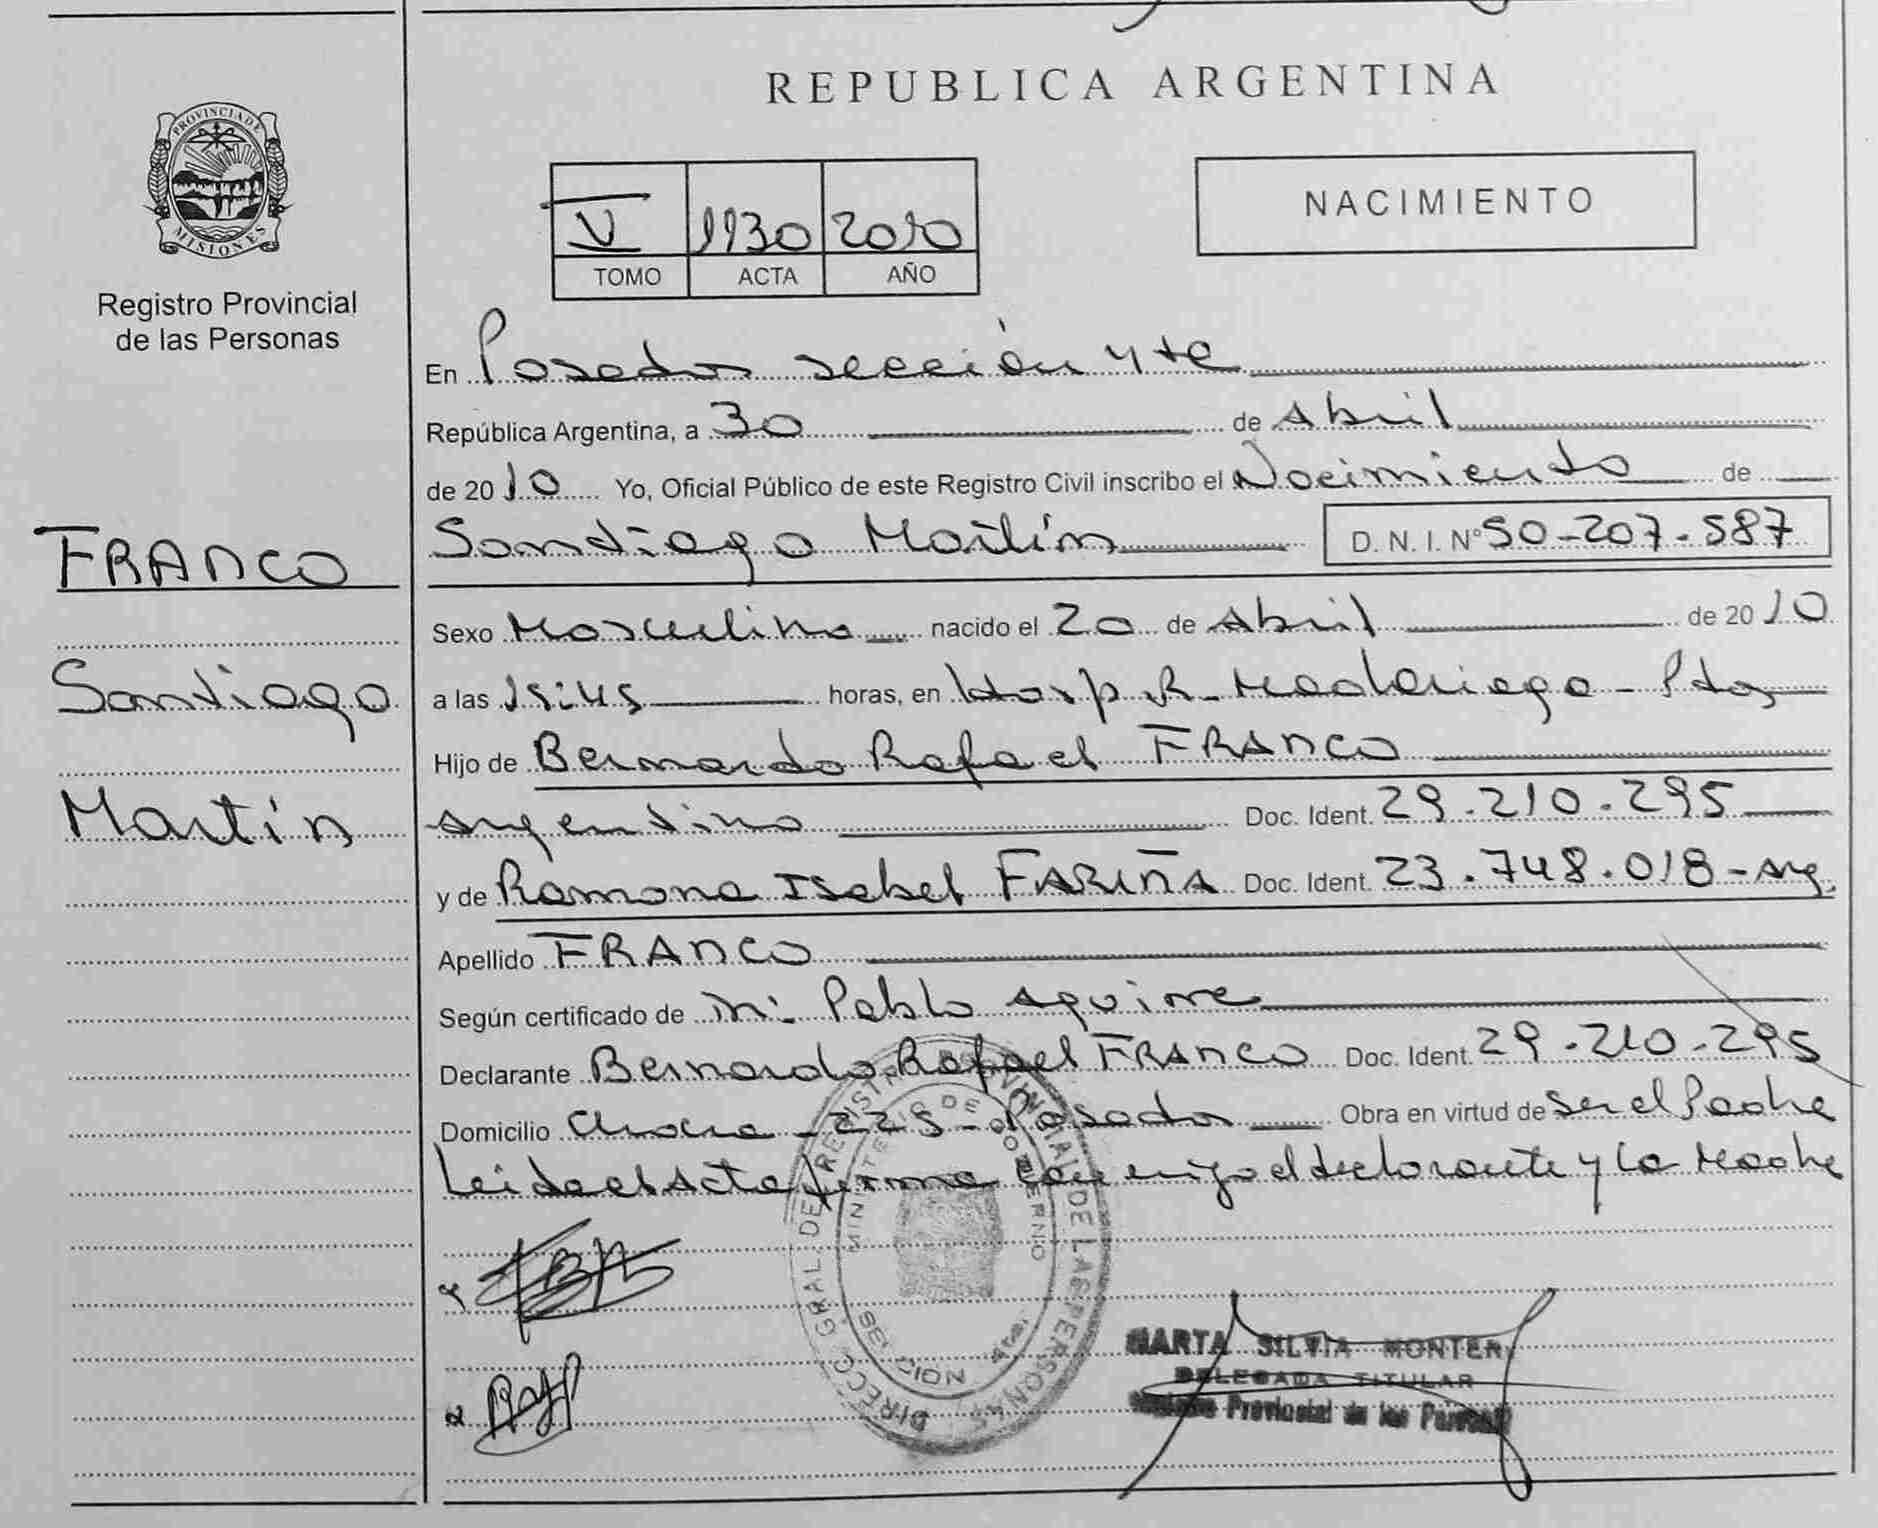 REPUBLICA ARGENTINA
PROVINCIA DE
MISIONES
Registro Provincial
de las Personas
V 1130 2010
TOMO ACTA AÑO
NACIMIENTO
FRANCO
Santiago
Martín
En Posadas sección 4 te
República Argentina, a 30 de Abril
de 2010 Yo, Oficial Público de este Registro Civil inscribo el Nacimiento de
Santiago Martín D. N. I. N° 50-207-587
Sexo Masculino nacido el 20 de Abril de 2010
a las 15:45 horas, en Hosp. R. Madariaga - Pdas
Hijo de Bernardo Rafael FRANCO
argentino Doc. Ident. 29.210.295
y de Ramona Isabel FARIÑA Doc. Ident. 23.748.018 - arg.
Apellido FRANCO
Según certificado de Pablo Aguirre
Declarante Bernardo Rafael FRANCO Doc. Ident. 29.210.295
Domicilio 225 - Posadas Obra en virtud de Ser el Padre
Leida el Acta firma conmigo el declarante y la Madre
DIRECC. GRAL. DE REGISTRO PROVINCIAL DE LAS PERSONAS
MINISTERIO DE GOBIERNO
MARTA SILVIA MONTER
DELEGADA TITULAR
Provincial de las Personas